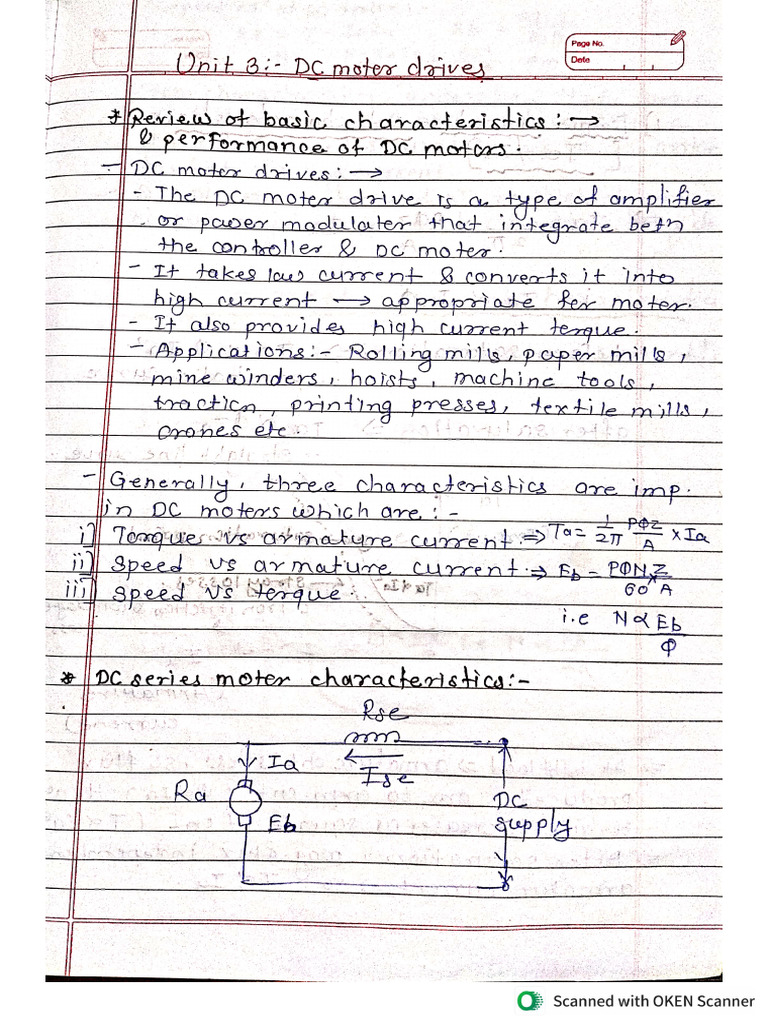 Page No.
Date
Unit 3:- DC moter drives
* Review of basic characteristics: →
& performance of DC motors.
- DC moter drives: →
- The DC moter drive is a type of amplifier
or power modulater that integrate betn
the controller & DC moter.
- It takes low current & converts it into
high current → appropriate fer moter.
- It also provides high current terque.
- Applications:- Rolling mills, paper mills,
mine winders, hoists, machine tools,
traction, printing presses, textile mills,
cranes etc
- Generally, three characteristics are imp.
in DC moters which are:-
i) Torques vs armature current. ⇒ Ta = 1/2π PΦZ/A × Ia
ii) Speed vs armature current. ⇒ Eb = PΦN/60 × Z/A
iii) Speed vs terque.
i.e N ∝ Eb/Φ
* DC series moter characteristics:-
Rse
Ia
Ise
Ra
DC
Eb
supply
Scanned with OKEN Scanner